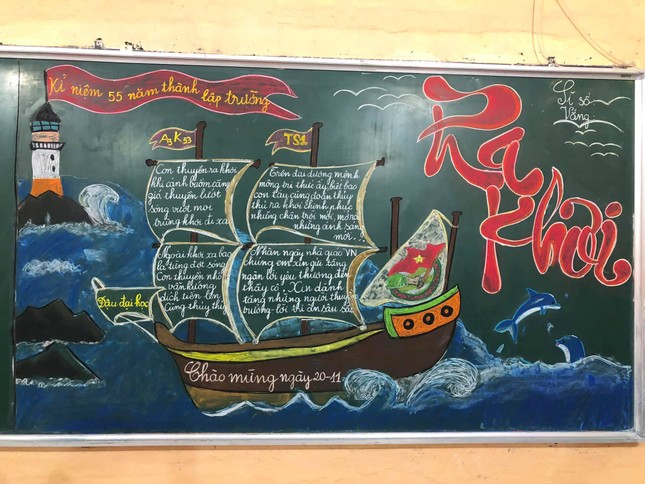 Kỉ niệm 55 năm thành lập trường
A3K53
TS1
Ra
Khơi
Sĩ số
Vắng
Con thuyền ra khơi
khi cánh buồm căng
gió, thuyền lướt
sóng vượt mọi
trùng khơi đi xa
Trên đại dương mênh
mông tri thức ấy, biết bao
con tàu cùng đoàn thủy
thủ ra khơi chinh phục
những chân trời mới, mở ra
những ánh sáng
mới..!
Ngoài khơi xa bao
la từng đợt sóng
Con thuyền nhỏ
vẫn hướng
đích tiến lên
Cùng thủy thủ
Nhân ngày nhà giáo VN
chúng em xin gửi tặng
ngàn lời yêu thương đến
thầy cô. Xin dành
tặng những người thuyền
trưởng lời tri ân sâu sắc
Đậu đại học
Chào mừng ngày 20-11